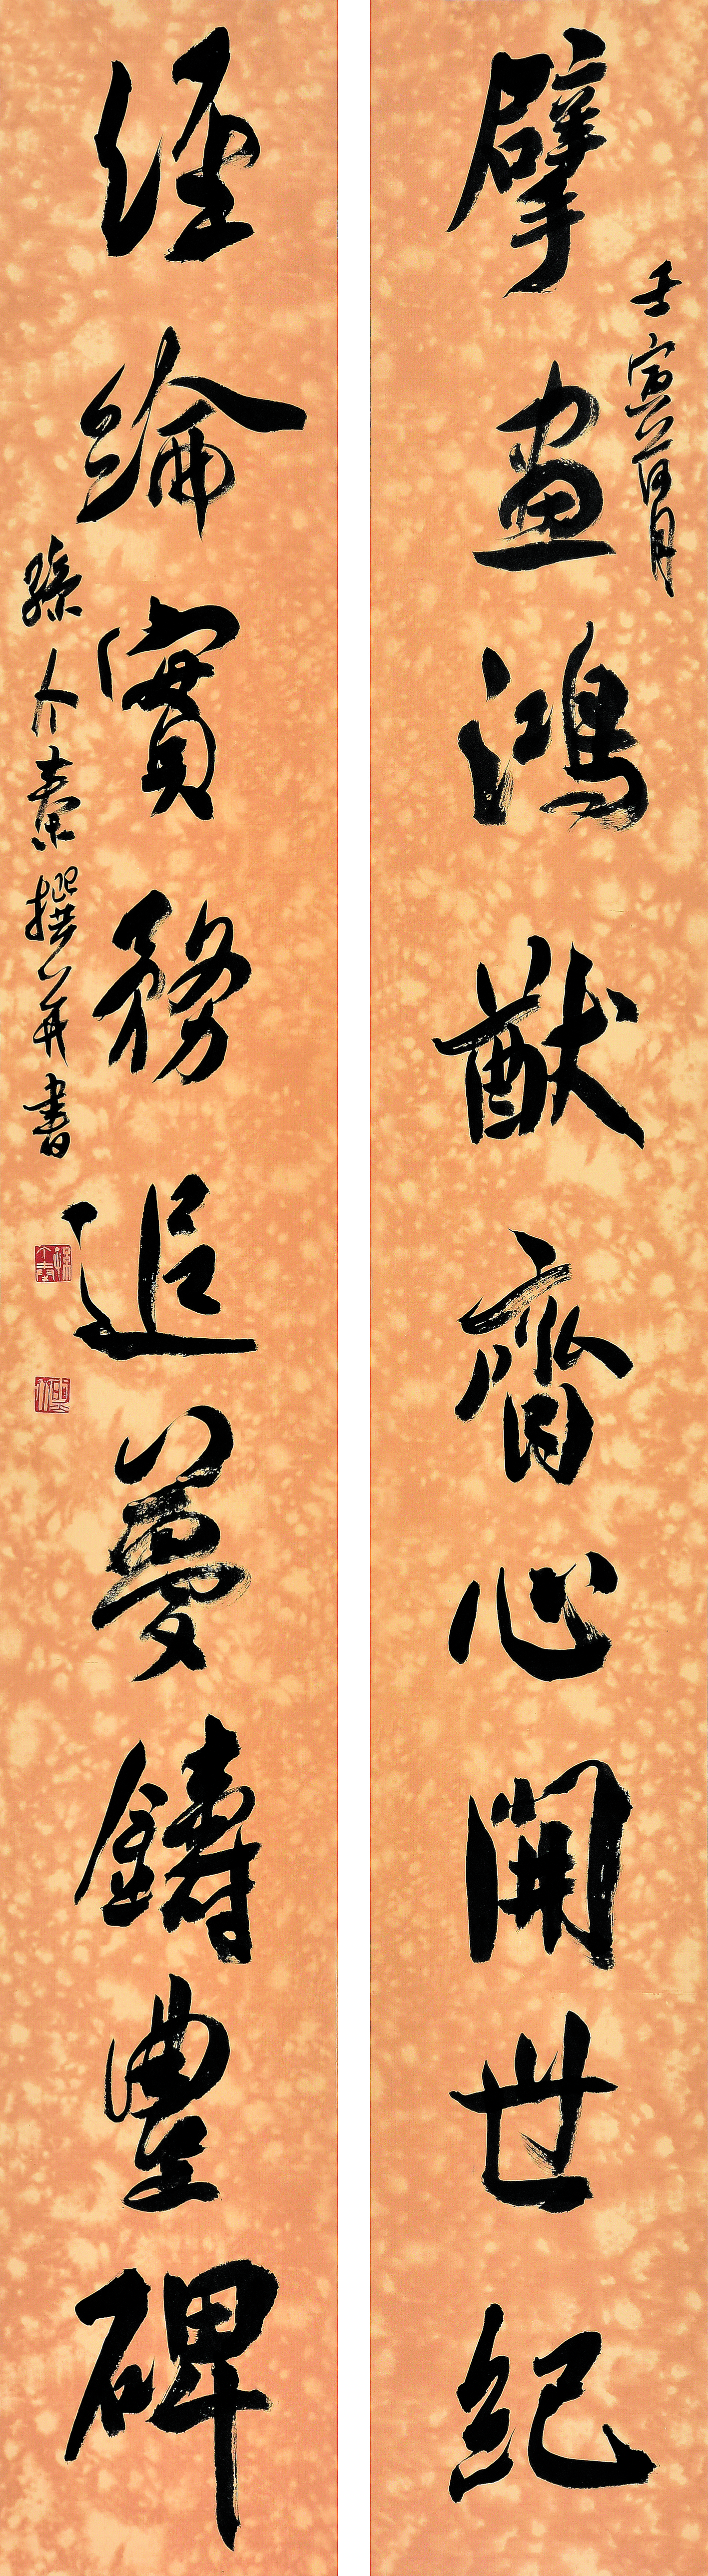 壬寅荷月
擘畫鴻猷齊心開世紀
經綸實務追夢鑄豐碑
孫介秦撰并書